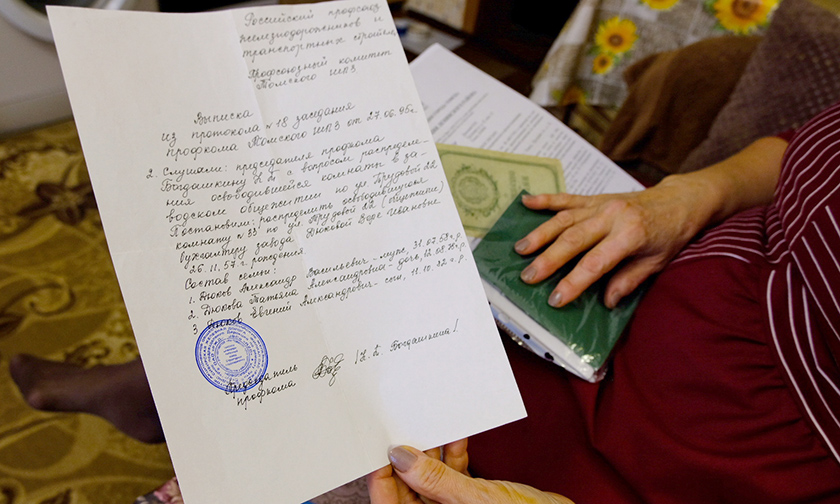 Российский профсоюз
железнодорожников и
транспортных строителей
Профсоюзный комитет
Томского ШПЗ
Выписка
из протокола №18 заседания
профкома Томского ШПЗ от 27.06.95г.
2. Слушали: председателя профкома
Богдашкину Н.П. с вопросом распределе-
ния освободившейся комнаты в за-
водском общежитии по ул. Трудовой 22
Постановили: распределить освободившуюся
комнату №33 по ул. Трудовой 22 (общежитие)
бухгалтеру завода Дюковой Вере Ивановне
26.11.57г. рождения
Состав семьи:
1. Дюков Александр Васильевич - муж, 31.07.58 г.р.
2. Дюкова Татьяна Александровна - дочь, 12.08.78 г.р.
3. Дюков Евгений Александрович - сын, 11.10.82 г.р.
Председатель
профкома
/Н.П. Богдашкина/